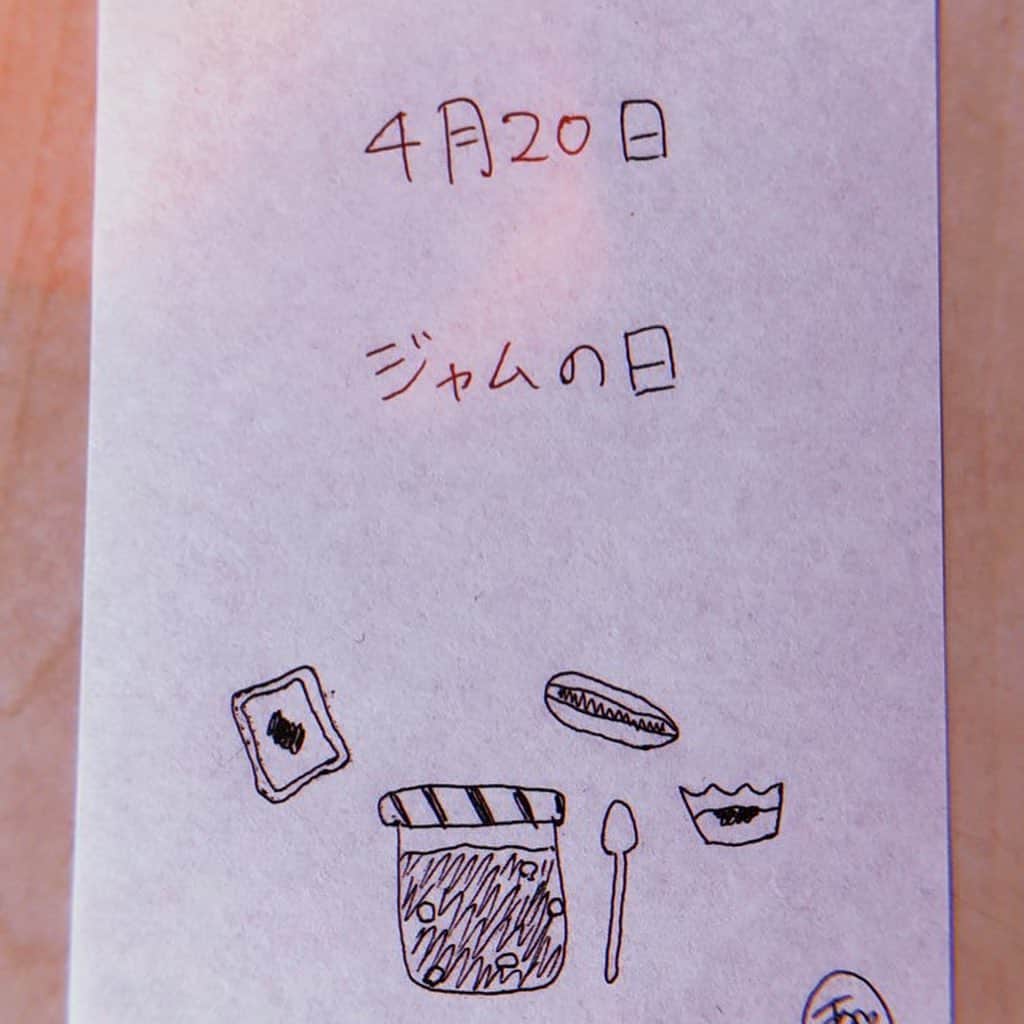 4月20日
ジャムの日